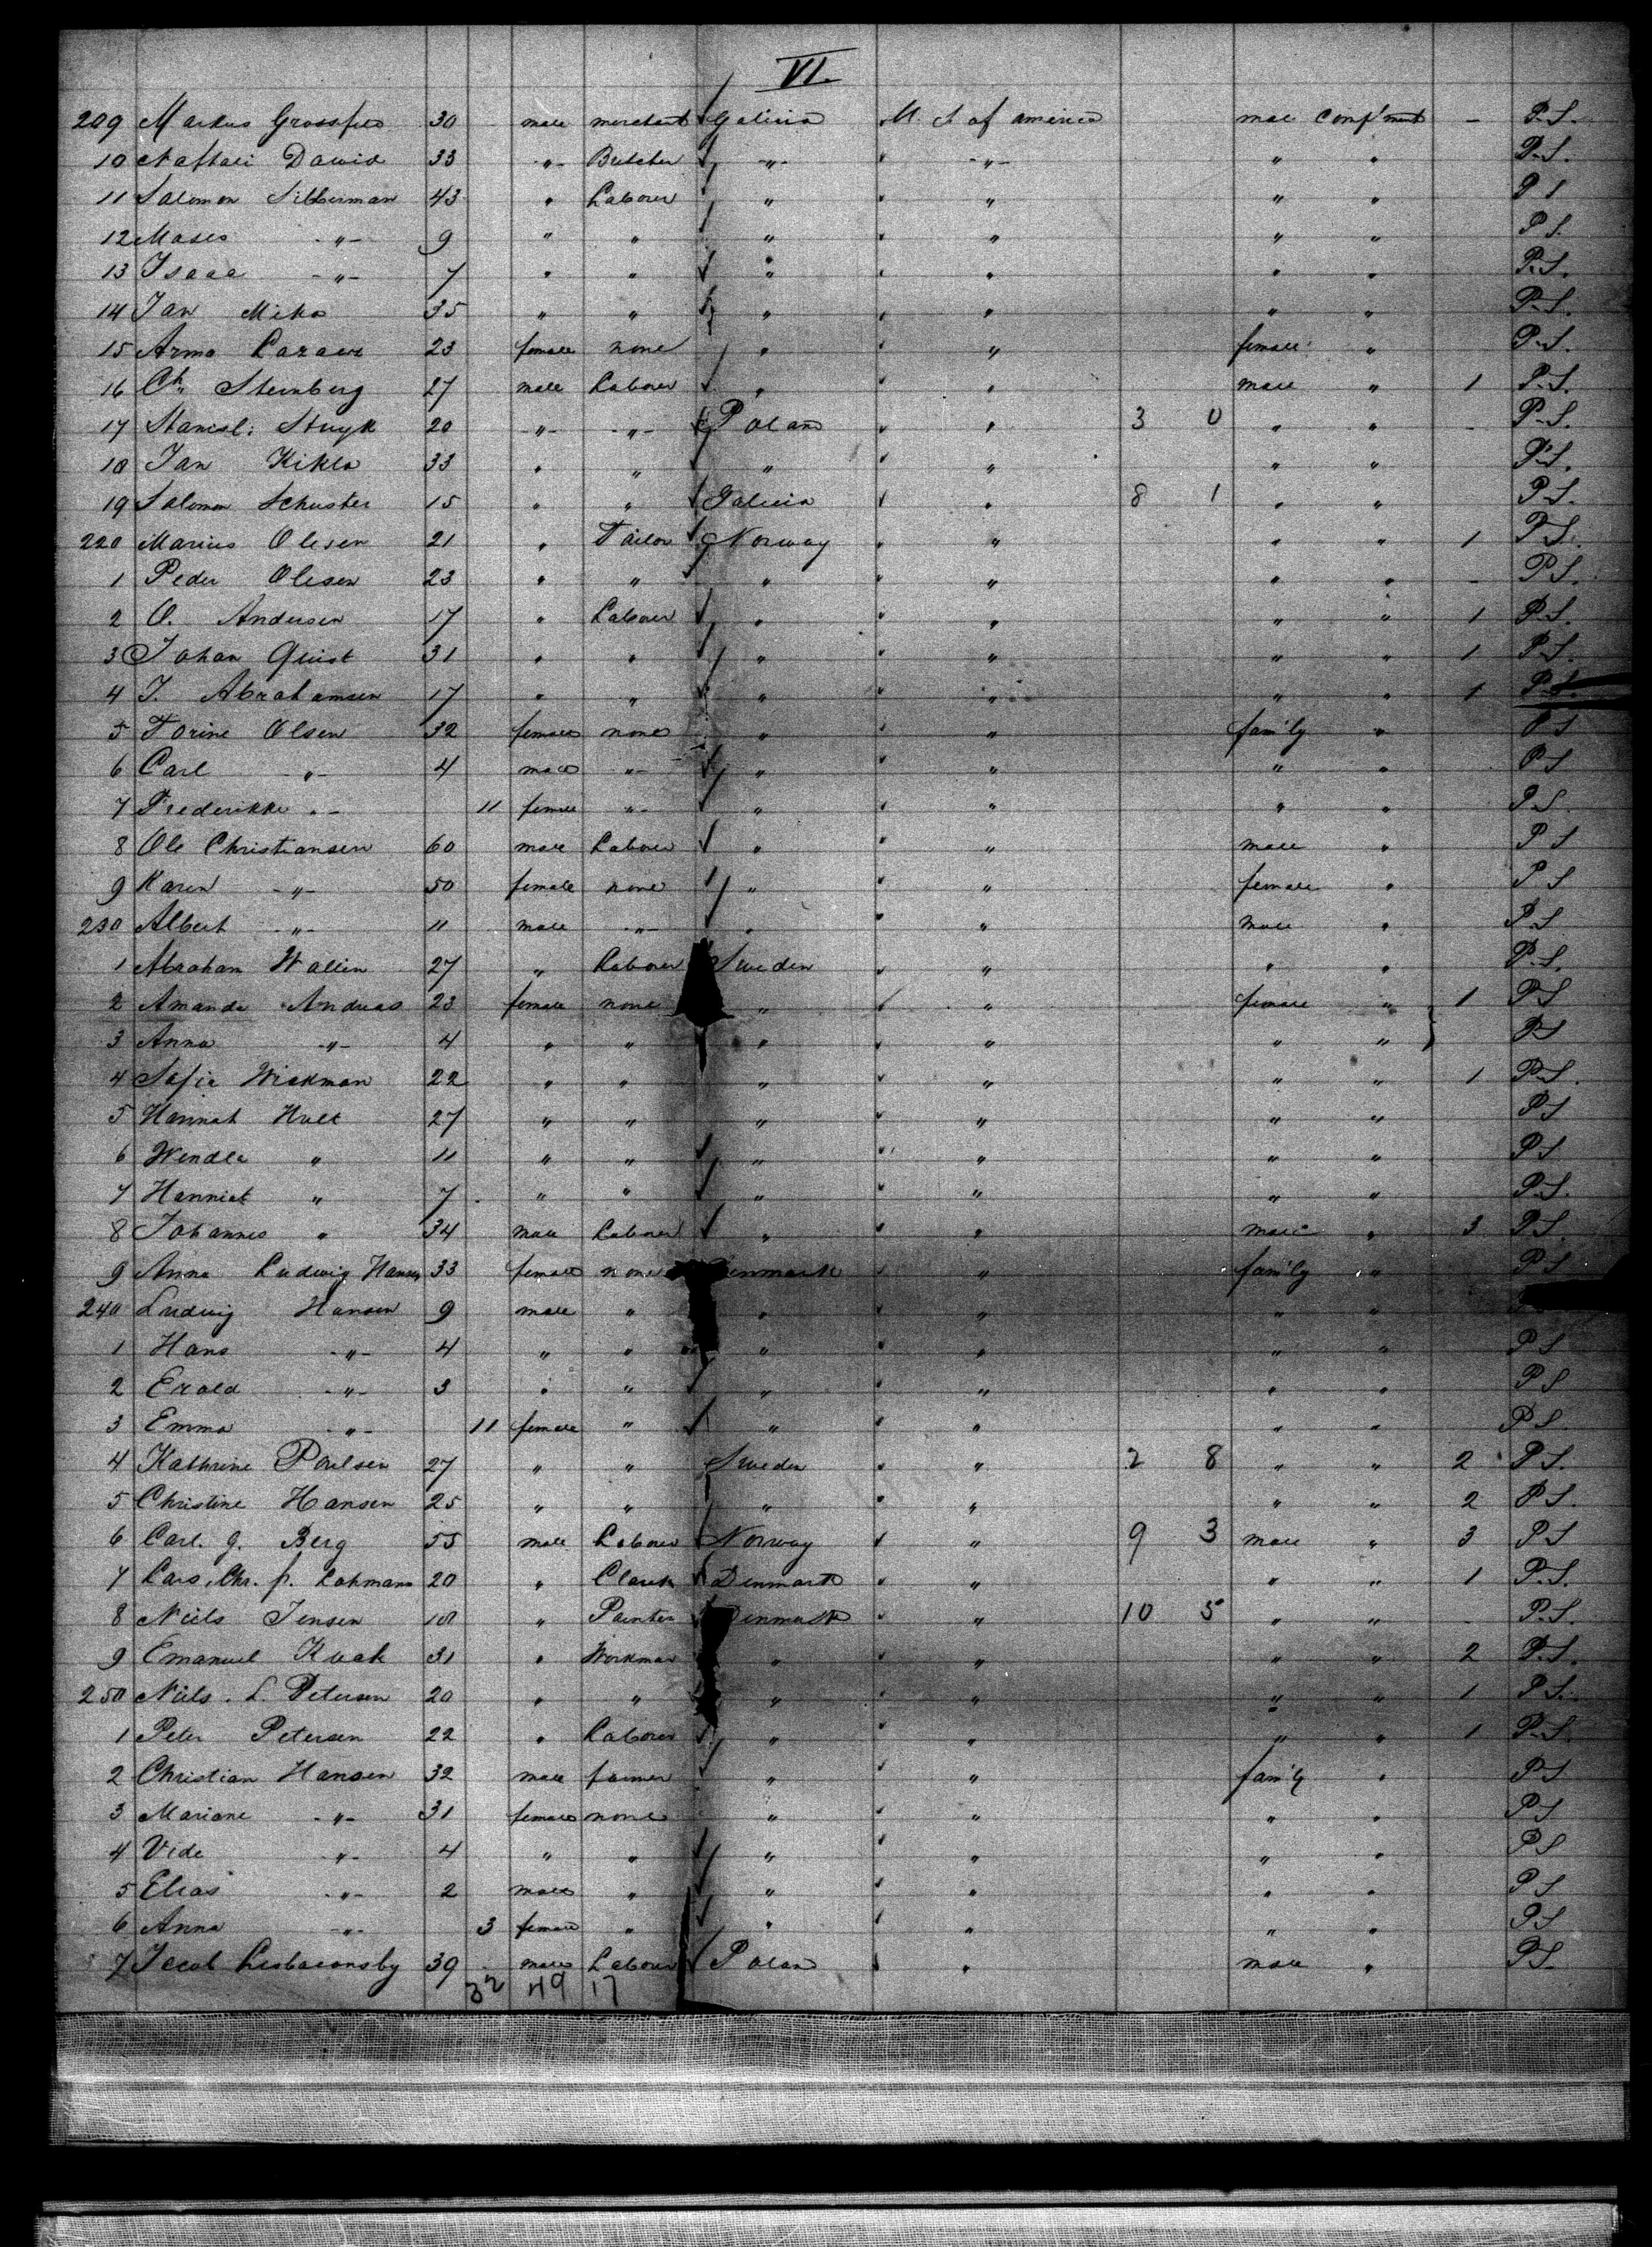 VI.
209 Markus Grossfeld 30 male merchant Galicia U. S. of america male comp'ment - P.S.
10 Naftali Dawid 33 -"- Butcher -"- -"- " " P.S.
11 Salomon Silberman 43 " Laborer " " " " P S
12 Moses -"- 9 " " " " " " P S.
13 Isaac -"- 7 " " " " " " P.S.
14 Jan Mika 35 " " " " " " P.S.
15 female none " " female " P.S.
16 Ch. Sternberg 27 male Laborer " " male " 1 P.S.
17 Stanisl: Stuyk 20 -"- -"- Poland " 3 0 " " - P.S.
18 Jan Kikla 33 " " " " " " P.S.
19 Salomon Schuster 15 " " Galicia " 8 1 " " P.S.
220 Marius Olesen 21 " Tailor Norway " " " 1 P.S.
1 Peder Olesen 23 " " " " " " - P S.
2 O. Andersen 17 " Laborer " " " " 1 P.S.
3 Johan Quist 31 " " " " " " 1 P.S.
4 J. Abrahamsen 17 " " " " " " 1 P.S.
5 Torine Olsen 32 female none " " fam'ly " P S
6 Carl -"- 4 male -"- " " " " P S
7 Frederikke "- 11 female "- " " " " P S.
8 Ole Christiansen 60 male Laborer " " male " P S
9 Karen -"- 50 female none " " female " P S
230 Albert -"- 11 male -"- " " male " P.S
1 Abraham Wallin 27 " Laborer Sweden " " " P.S.
2 Amanda Andreas 23 female none " " female " 1 P S
3 Anna -"- 4 " " " " " " P S
4 Sofia Wickman 22 " " " " " " 1 P.S.
5 Hannah Hult 27 " " " " " " P S
6 Wendla " 11 " " " " " " P S
7 " 7 " " " " " " P.S.
8 Johannes " 34 male Laborer " " male " 3 P S.
9 Anna Ludwig Hansen 33 female none Denmark " fam'ly " P S
240 Ludwig Hansen 9 male " " " " "
1 Hans -"- 4 " " " " " " P S
2 Erald -"- 3 " " " " " " P S
3 Emma -"- 11 female " " " " " P S
4 Kathrine Poulsen 27 " " Sweden " 2 8 " " 2 P S.
5 Christine Hansen 25 " " " " " " 2 P S.
6 Carl. G. Berg 55 male Laborer Norway " 9 3 male " 3 P S
7 Lars, Chr. P. Lohmann 20 " Clerk Denmark " " " 1 P.S.
8 Niels Jensen 18 " Painter Denmark " 10 5 " " P.S.
9 Emanuel Kvak 31 " Workman " " " " 2 P.S.
250 Niels. L. Petersen 20 " " " " " " 1 P S.
1 Peter Petersen 22 " Laborer " " " " 1 P.S.
2 Christian Hansen 32 male farmer " " fam'ly " P S
3 Mariane -"- 31 female none " " " " P S
4 Vide -"- 4 " " " " " " P S
5 Elias -"- 2 male " " " " " P S
6 Anna -"- 3 female " " " " " P S
7 Jacob 39 male Laborer Poland " male " P S.
32 49 17